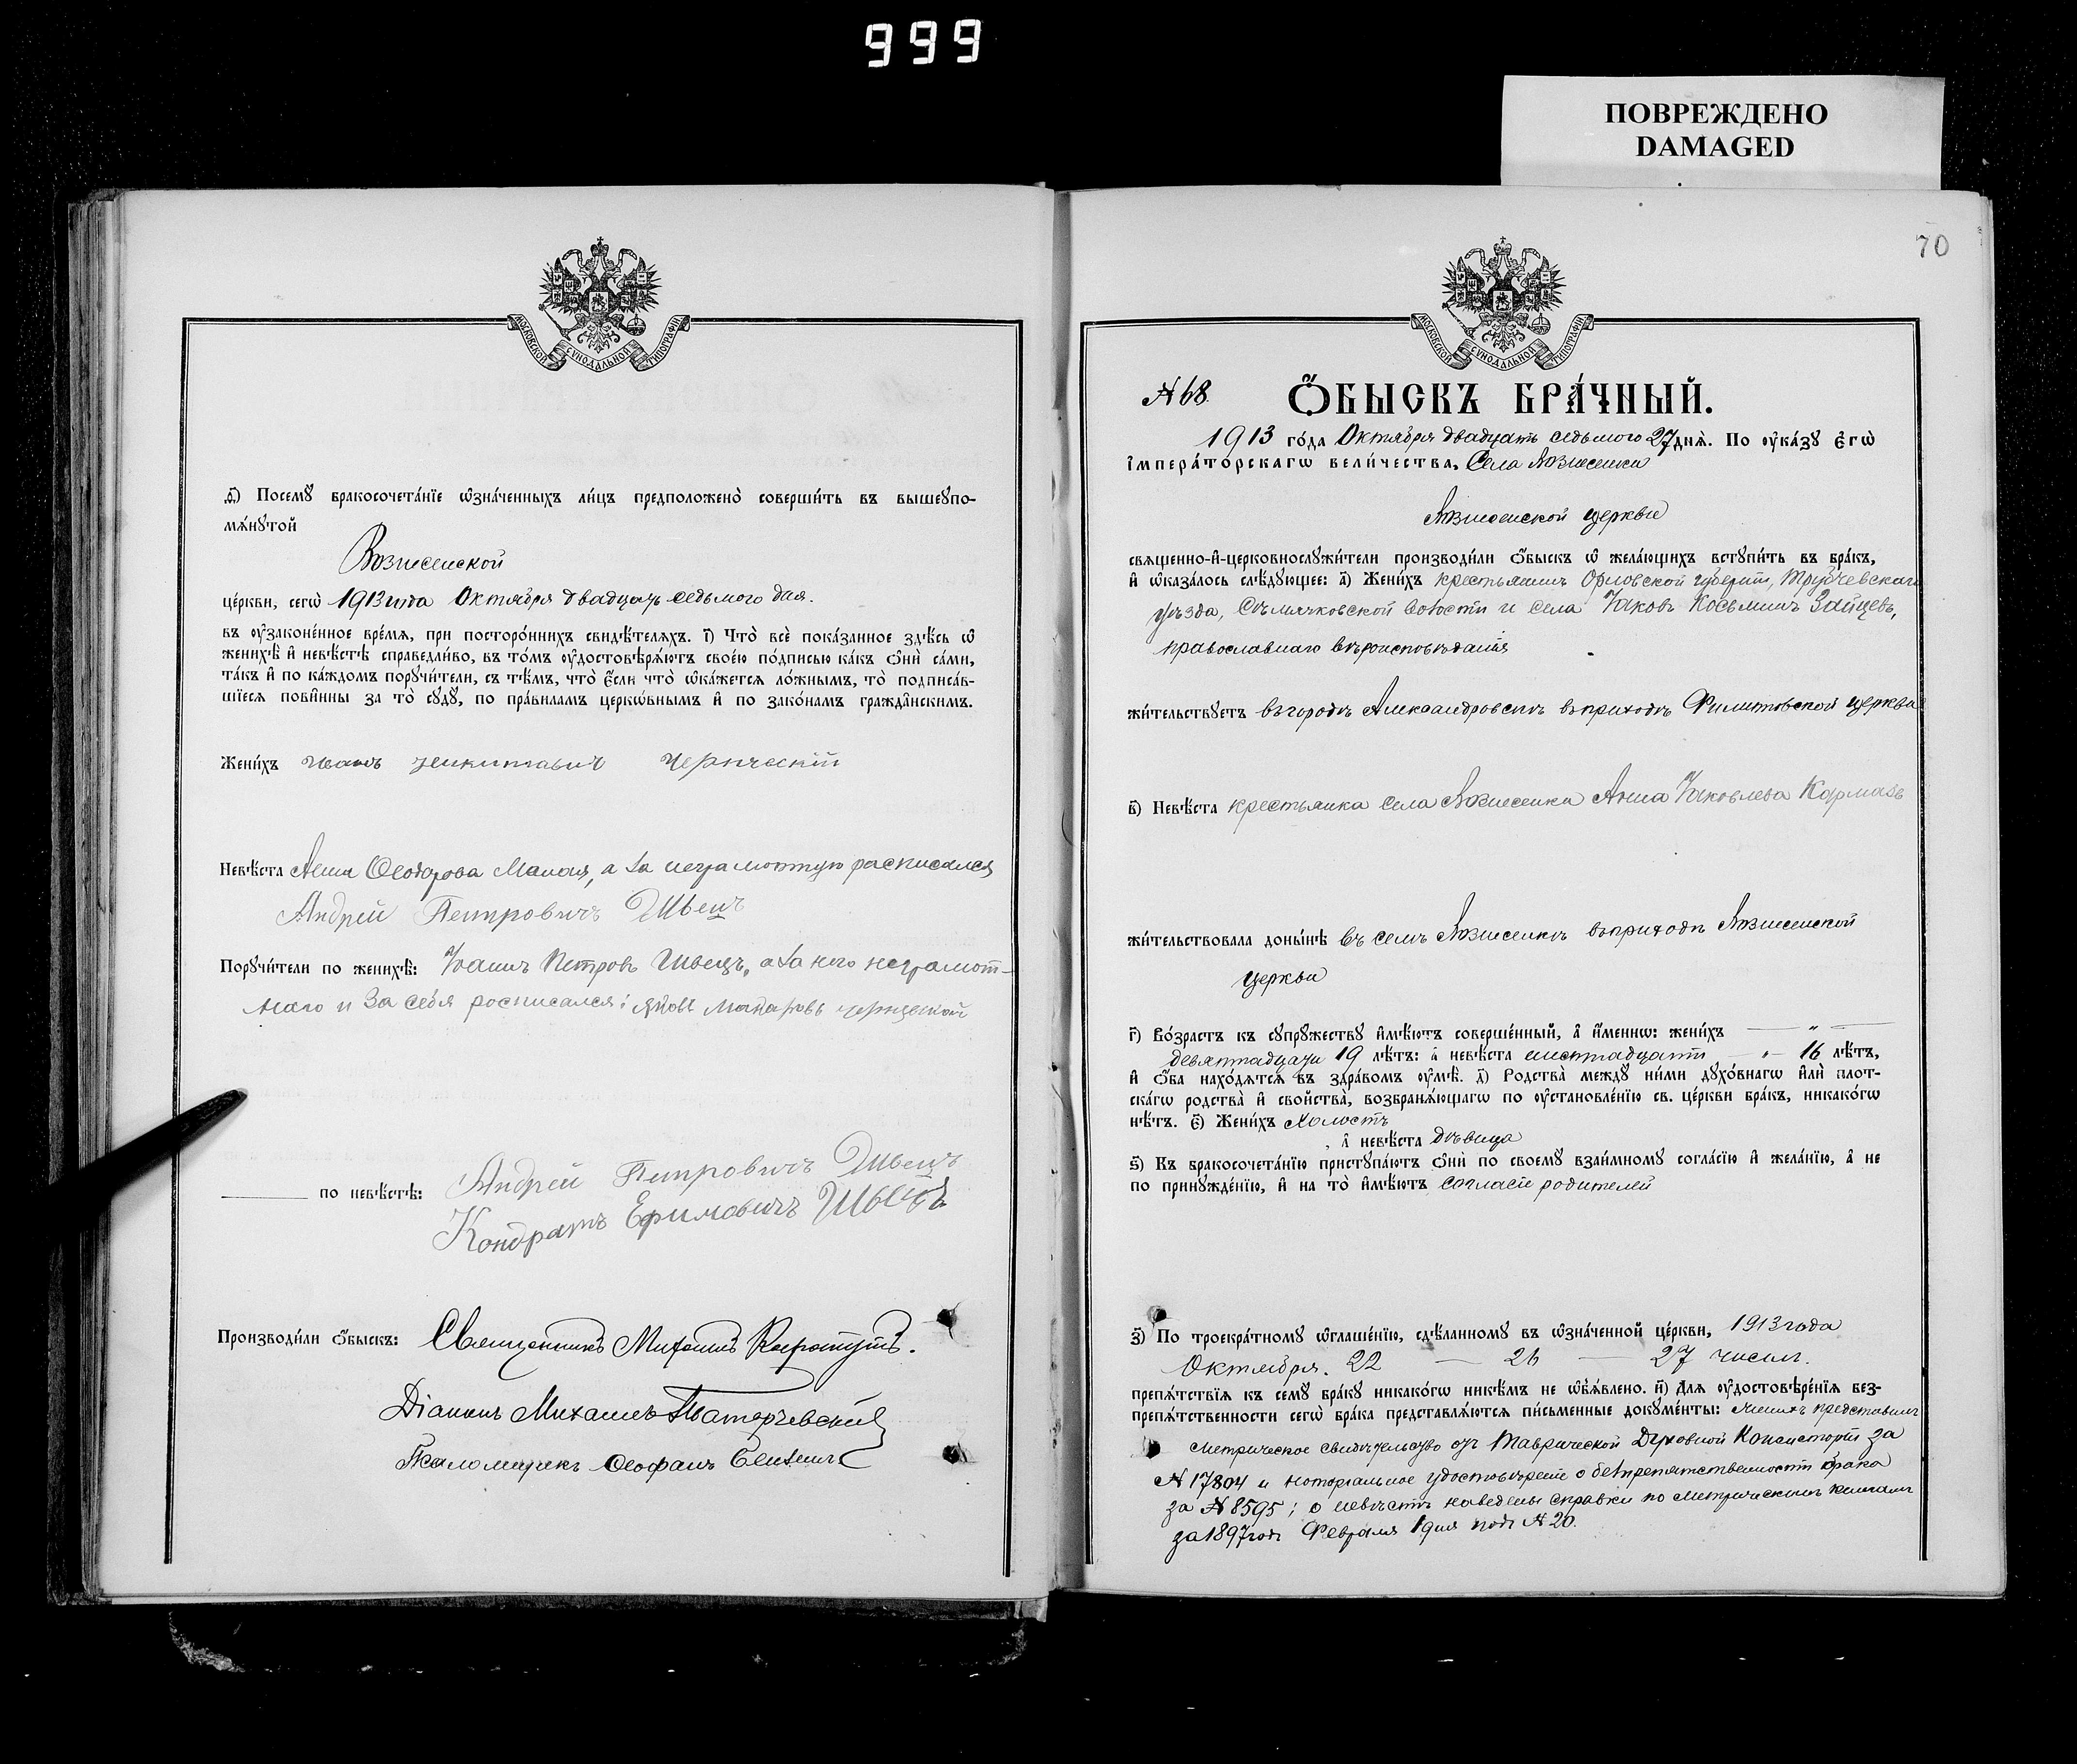 999
ПОВРЕЖДЕНО
DAMAGED
МОСКОВСКОЙ СѴНОДАЛЬНОЙ ТИПОГРАФІИ
ѳ҃) Посемꙋ̀ бракосочета́нїе ѡ҆зна́ченныхъ ли́цъ предположено̀ соверши́ть въ вышеꙋпо-
мѧ́нꙋтой
Вознесенской
це́ркви, сегѡ̀ 1913 года Октября двадцать седьмого дня.
въ ᲂу҆зако́ненное вре́мѧ, при посторо́ннихъ свидѣ́телѧхъ. і҃) Что̀ всѐ пока́занное здѣ́сь ѡ҆
женихѣ̀ и҆ невѣ́стѣ справедли́во, въ то́мъ ᲂу҆достовѣрѧ́ютъ своє́ю по́дписью ка́къ ѻ҆нѝ са́ми,
та́къ и҆ по ка́ждомъ порꙋчи́тели, съ тѣ́мъ, что̀ є҆́сли что̀ ѡ҆ка́жетсѧ ло́жнымъ, то̀ подписа́в-
шїесѧ пови́нны за то̀ сꙋдꙋ̀, по пра́виламъ церко́внымъ и҆ по зако́намъ гражда́нскимъ.
Жени́хъ Иванъ Никитавич Чернческій
Невѣ́ста Анна Ѳеодорова Малая, а за неграмотную расписался
Андрей Петровичъ Швецъ
Порꙋчи́тели по женихѣ̀: Іоаннъ Петровъ Швецъ, а за него неграмот-
наго и за себя росписался: Яковъ Макаровъ
по невѣ́стѣ: Андрей Петровичъ Швецъ
Кондратъ Ефимовичъ Швецъ
Производи́ли ѻ҆́быскъ: Священникъ Михаилъ
Діаконъ Михаилъ
Псаломщикъ Ѳеофанъ
70
МОСКОВСКОЙ СѴНОДАЛЬНОЙ ТИПОГРАФІИ
№ 68. Ѻ҆́БЫСКЪ БРА́ЧНЫЙ.
1913 го́да Октября двадцать седьмого 27 днѧ̀. По ᲂу҆ка́зꙋ є҆гѡ̀
і҆мпера́торскагѡ вели́чества, Села Вознесенки
Вознесенской церкви
свѧщенно-и҆-церковнослꙋжи́тели производи́ли ѻ҆́быскъ ѡ҆ жела́ющихъ встꙋпи́ть въ бра́къ,
и҆ ѡ҆каза́лось слѣ́дꙋющее: а҃) Жени́хъ крестьянинъ Орловской губерніи, Трубчевскаго
уѣзда, Сѣмячковской волости и села Іаковъ Косьминъ Зайцевъ,
православнаго вѣроисповѣданія
жи́тельствꙋетъ въ городѣ Александровскѣ въ приходѣ Филиповской церкви
в҃) Невѣ́ста крестьянка села Вознесенки Анна Іаковлева Кармазь
жи́тельствовала доны́нѣ въ селѣ Вознесенкѣ въ приходѣ Вознесенской
церкви
г҃) Во́зрастъ къ сꙋпрꙋ́жествꙋ и҆мѣ́ютъ соверше́нный, а҆ и҆́меннѡ: жени́хъ
девятнадцати 19 лѣ́тъ: а҆ невѣ́ста шестнадцати 16 лѣ́тъ,
и҆ ѻ҆́ба нахо́дѧтсѧ въ здра́вомъ ᲂу҆мѣ̀. д҃) Родства̀ междꙋ̀ ни́ми дꙋхо́внагѡ и҆лѝ плот-
ска́гѡ родства̀ и҆ сво́йства, возбранѧ́ющагѡ по ᲂу҆становле́нїю св. це́ркви бра́къ, никако́гѡ
нѣ́тъ. є҃) Жени́хъ холостъ
а҆ невѣ́ста дѣвица
ѕ҃) Къ бракосочета́нїю пристꙋпа́ютъ ѻ҆нѝ по своемꙋ̀ взаи́мномꙋ согла́сїю и҆ жела́нїю, а҆ не
по принꙋжде́нїю, и҆ на то̀ и҆мѣ́ютъ согласіе родителей
з҃) По троекра́тномꙋ ѡ҆глаше́нїю, сдѣ́ланномꙋ въ ѡ҆зна́ченной це́ркви, 1913 года
Октября. 22 — 26 — 27 чиселъ.
препѧ́тствїѧ къ семꙋ̀ бра́кꙋ никако́гѡ никѣ́мъ не ѡ҆б̾ѧ́влено. и҃) Длѧ ᲂу҆достовѣре́нїѧ без-
препѧ́тственности сегѡ̀ бра́ка представлѧ́ютсѧ пи́сьменные докꙋме́нты: женихъ представилъ
метрическое свидѣтельство отъ Таврической Духовной Консисторіи за
№ 17804 и нотаріальное удостовѣреніе о безпрепятственности брака
за № 8595; о невѣстѣ наведены справки по метрическимъ книгамъ
за 1897 годъ Февраля 1 дня подъ № 20.